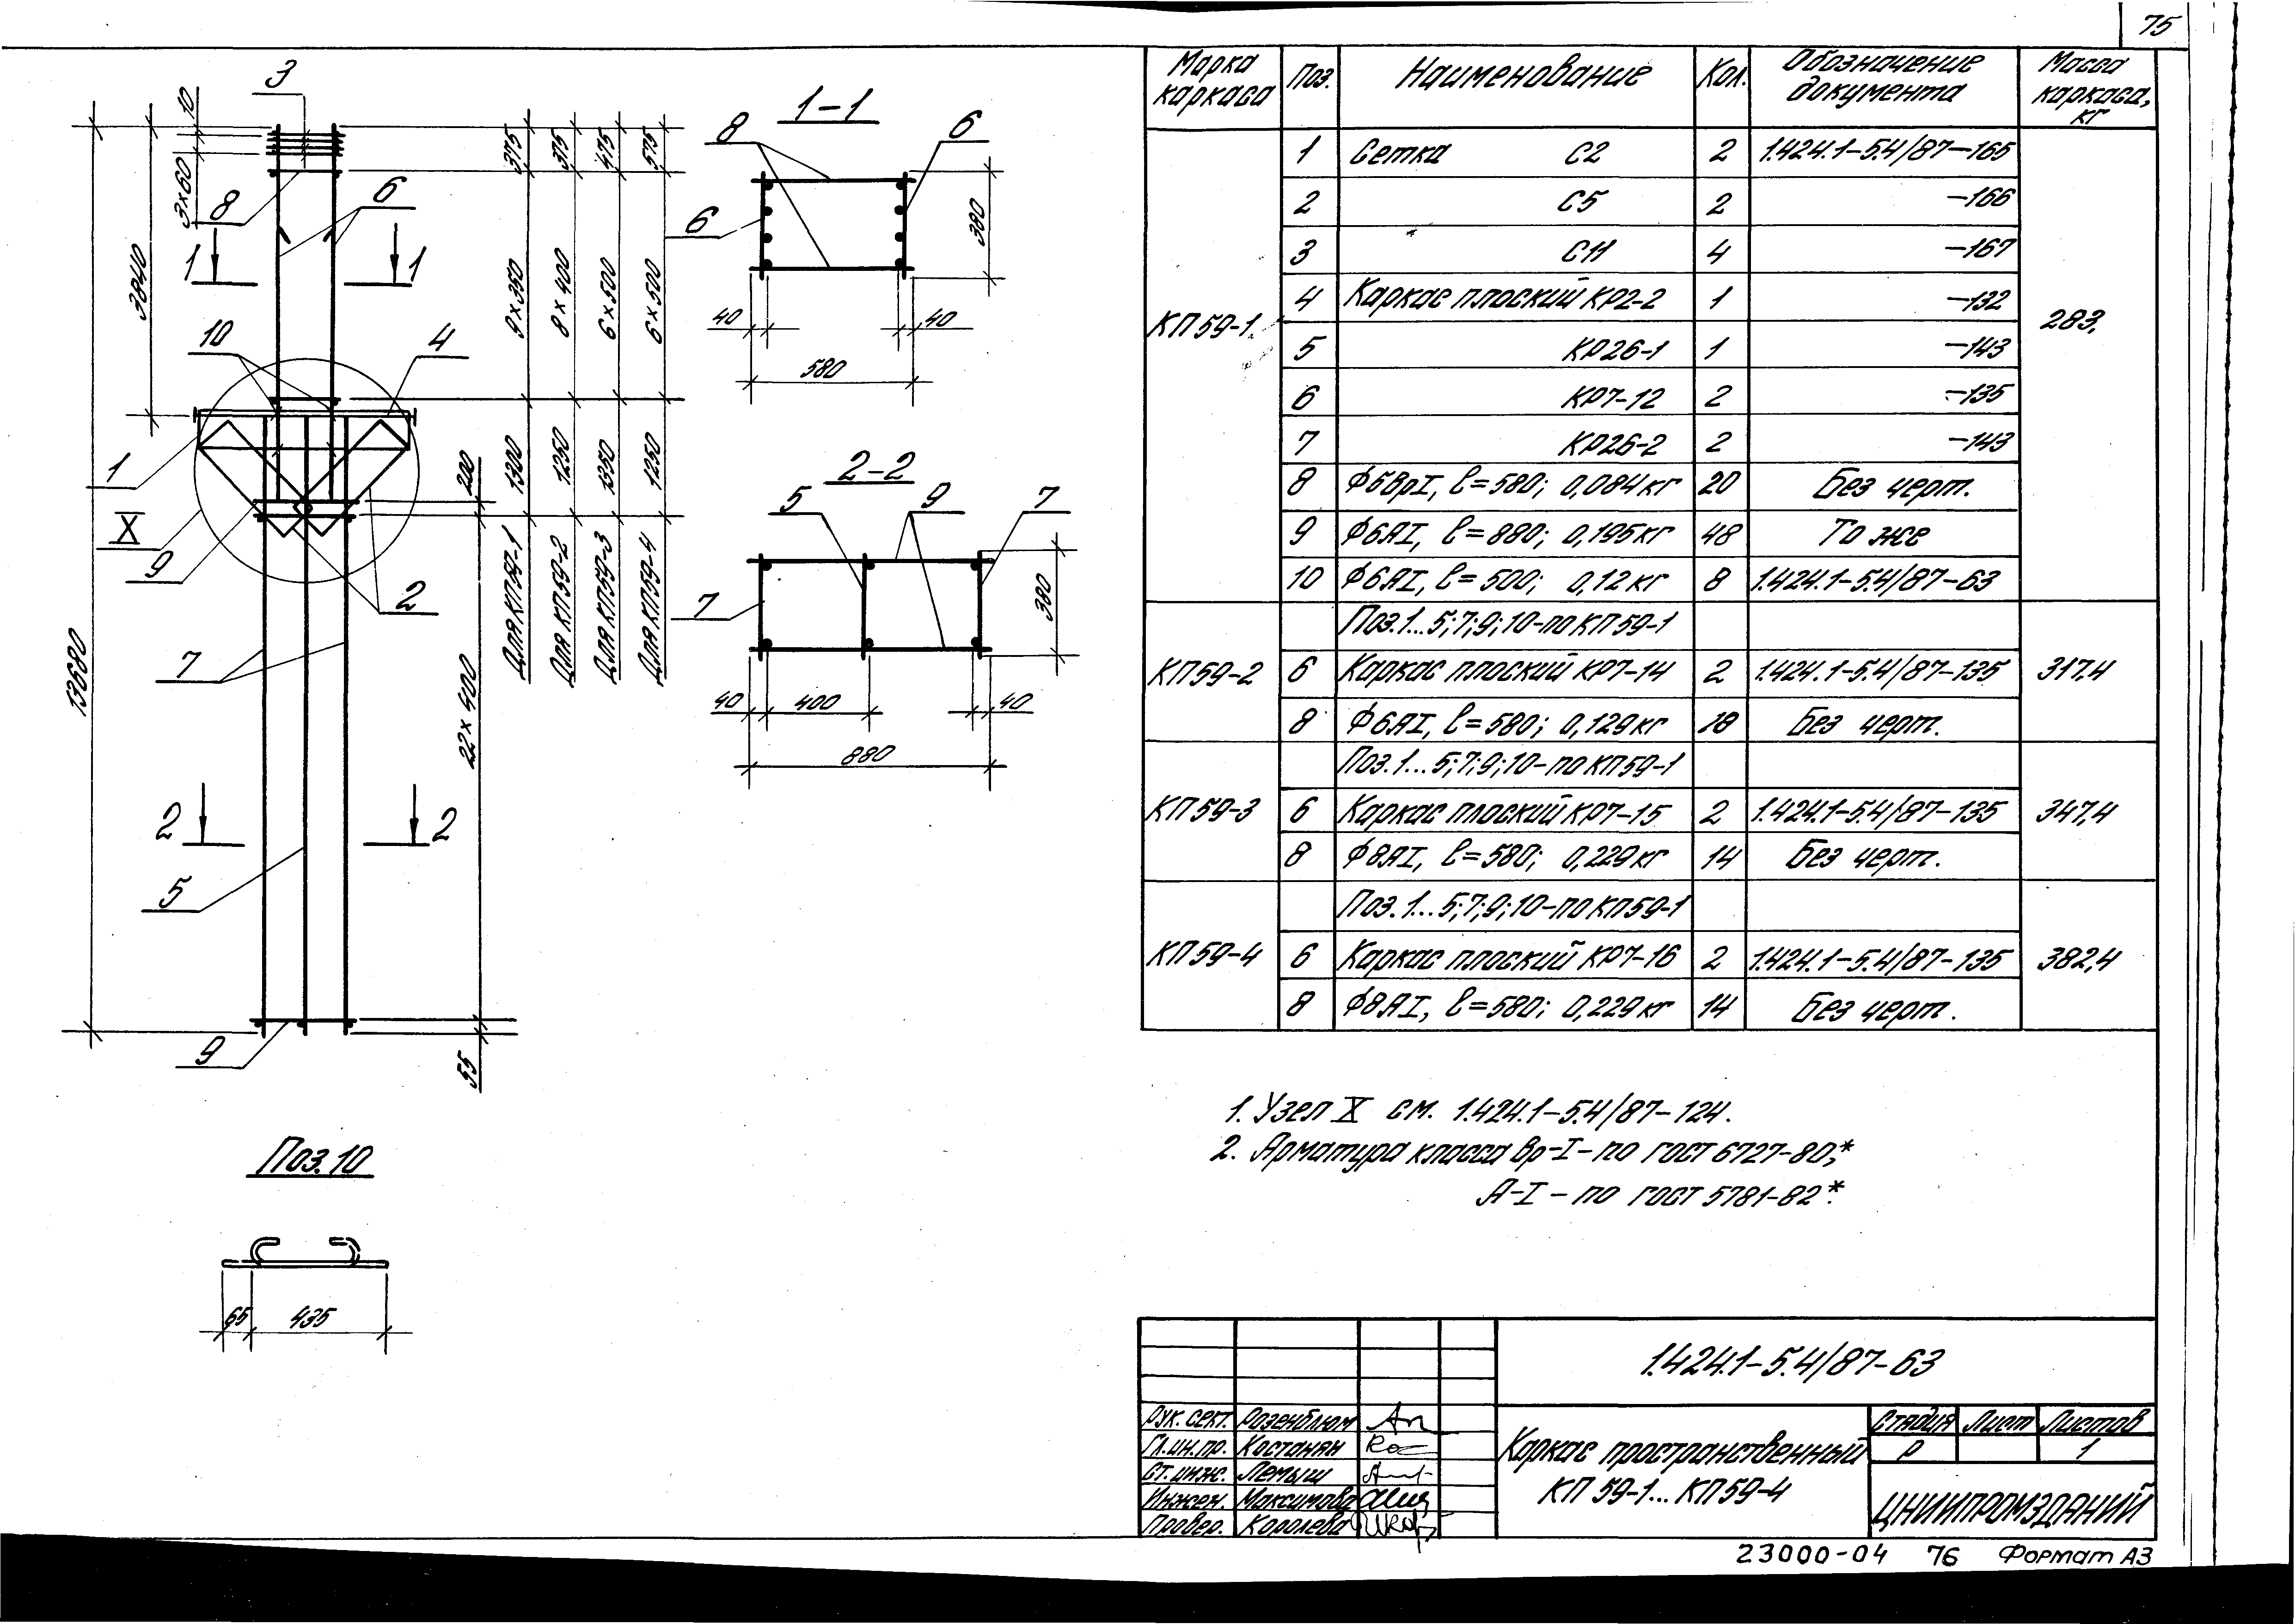 75
3
10
3×60
3840
13680
8
6
1
1
10
4
1
X
9
2
7
2
2
5
9
375
375
475
575
9×350
8×400
6×500
6×500
1300
1250
1350
1250
200
22×400
55
Для КП59-1
Для КП59-2
Для КП59-3
Для КП59-4
1-1
8
6
6
380
40
40
580
2-2
5
9
7
7
380
40
400
40
880
Поз.10
65
435
Марка каркаса
Поз.
Наименование
Кол.
Обозначение документа
Масса каркаса, кг
КП59-1
1 Сетка С2 2 1.424.1-5.4/87-165
2 С5 2 -166
3 С11 4 -167
4 Каркас плоский КР2-2 1 -132
283,
5 КР26-1 1 -143
6 КР7-12 2 -135
7 КР26-2 2 -143
8 Ф6ВрI, ℓ=580; 0,084кг 20 Без черт.
9 Ф6АI, ℓ=880; 0,195кг 48 То же
10 Ф6АI, ℓ=500; 0,12кг 8 1.424.1-5.4/87-63
Поз.1...5;7;9;10-по КП59-1
КП59-2 6 Каркас плоский КР7-14 2 1.424.1-5.4/87-135 317,4
8 Ф6АI, ℓ=580; 0,129кг 18 Без черт.
Поз.1...5;7;9;10-по КП59-1
КП59-3 6 Каркас плоский КР7-15 2 1.424.1-5.4/87-135 347,4
8 Ф8АI, ℓ=580; 0,229кг 14 Без черт.
Поз.1...5;7;9;10-по КП59-1
КП59-4 6 Каркас плоский КР7-16 2 1.424.1-5.4/87-135 382,4
8 Ф8АI, ℓ=580; 0,229кг 14 Без черт.
1. Узел X см. 1.424.1-5.4/87-124.
2. Арматура класса Вр-I-по ГОСТ 6727-80,*
А-I-по ГОСТ 5781-82*.
1.424.1-5.4/87-63
Рук. сект. Розенблюм
Гл.ин.пр. Костанян
Ст.инж. Лемыш
Инжен. Максимова
Провер. Королева
Каркас пространственный
КП 59-1...КП59-4
Стадия Лист Листов
Р 1
ЦНИИПРОМЗДАНИЙ
23000-04 76 Формат А3